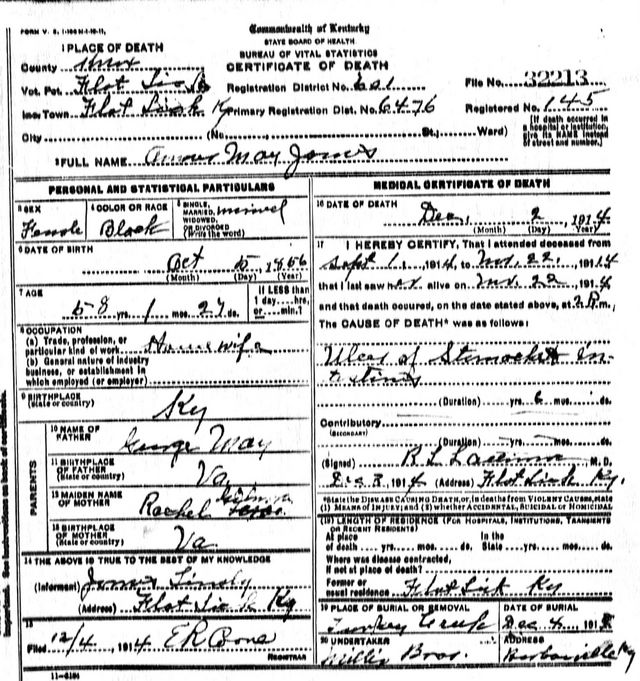 FORM V. S. 1-
Commonwealth of Kentucky
STATE BOARD OF HEALTH.
BUREAU OF VITAL STATISTICS
CERTIFICATE OF DEATH
1 PLACE OF DEATH
County Knox
Vot. Pct. Flat Lick Registration District No. 601 File No. 32213
Inc. Town Flat Lick Ky Primary Registration Dist. No. 6476 Registered No. 145
City (No. St.; Ward)
[If death occurred in a hospital or institution, give its NAME instead of street and number.]
2 FULL NAME May Jones
PERSONAL AND STATISTICAL PARTICULARS
3 SEX Female
4 COLOR OR RACE Black
5 SINGLE, MARRIED, WIDOWED, OR DIVORCED (Write the word)
6 DATE OF BIRTH Oct 5, 1856
(Month) (Day) (Year)
7 AGE 58 yrs. 1 mos. 27 ds.
If LESS than 1 day....hrs. or....min.?
8 OCCUPATION
(a) Trade, profession, or particular kind of work Housewife
(b) General nature of industry business, or establishment in which employed (or employer)
9 BIRTHPLACE (State or country) Ky
PARENTS
10 NAME OF FATHER George May
11 BIRTHPLACE OF FATHER (State or country) Va
12 MAIDEN NAME OF MOTHER Rachel
13 BIRTHPLACE OF MOTHER (State or country) Va
14 THE ABOVE IS TRUE TO THE BEST OF MY KNOWLEDGE
(Informant)
(Address) Flat Lick Ky
15 Filed 12/4, 1914 E R
REGISTRAR
11-6184
MEDICAL CERTIFICATE OF DEATH
16 DATE OF DEATH Dec, 2 1914
(Month) (Day) (Year)
17 I HEREBY CERTIFY, That I attended deceased from
Sept 1, 1914, to Nov. 22, 1914
that I last saw her alive on Nov. 22 1914
and that death occured, on the date stated above, at 2 P.m.
The CAUSE OF DEATH* was as follows:
Ulcer of Stomach & In-
testines
(Duration) yrs. 6 mos. ds.
Contributory
(SECONDARY)
(Duration) yrs. mos. ds.
(Signed) B L M. D.
Dec 3, 1914 (Address) Flat Lick Ky.
*State the DISEASE CAUSING DEATH, or, in deaths from VIOLENT CAUSES, state (1) MEANS OF INJURY; and (2) whether ACCIDENTAL, SUICIDAL or HOMICIDAL
LENGTH OF RESIDENCE (FOR HOSPITALS, INSTITUTIONS, TRANSIENTS OR RECENT RESIDENTS)
At place of death yrs. mos. ds. In the State yrs. mos. ds.
Where was disease contracted, if not at place of death?
Former or usual residence Flat Lick Ky
19 PLACE OF BURIAL OR REMOVAL Turkey Creek
DATE OF BURIAL Dec 4, 191
20 UNDERTAKER Bros.
ADDRESS Barbourville Ky